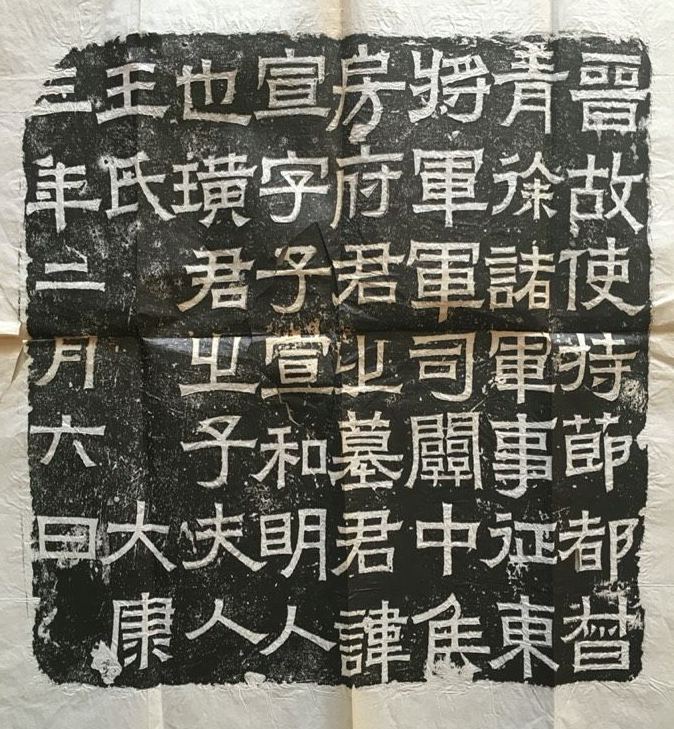 晉故使持節都督
青徐諸軍事征東
將軍軍司關中侯
房府君之墓君諱
宣字子宣和明人
也璜君之子夫人
王氏 大康
三年二月六日